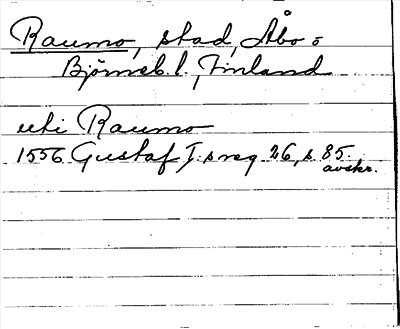 Raumo, stad, Åbo o
Björneb. l., Finland
uti Raumo
1556 Gustaf I:s reg 26, s. 85.
avskr.